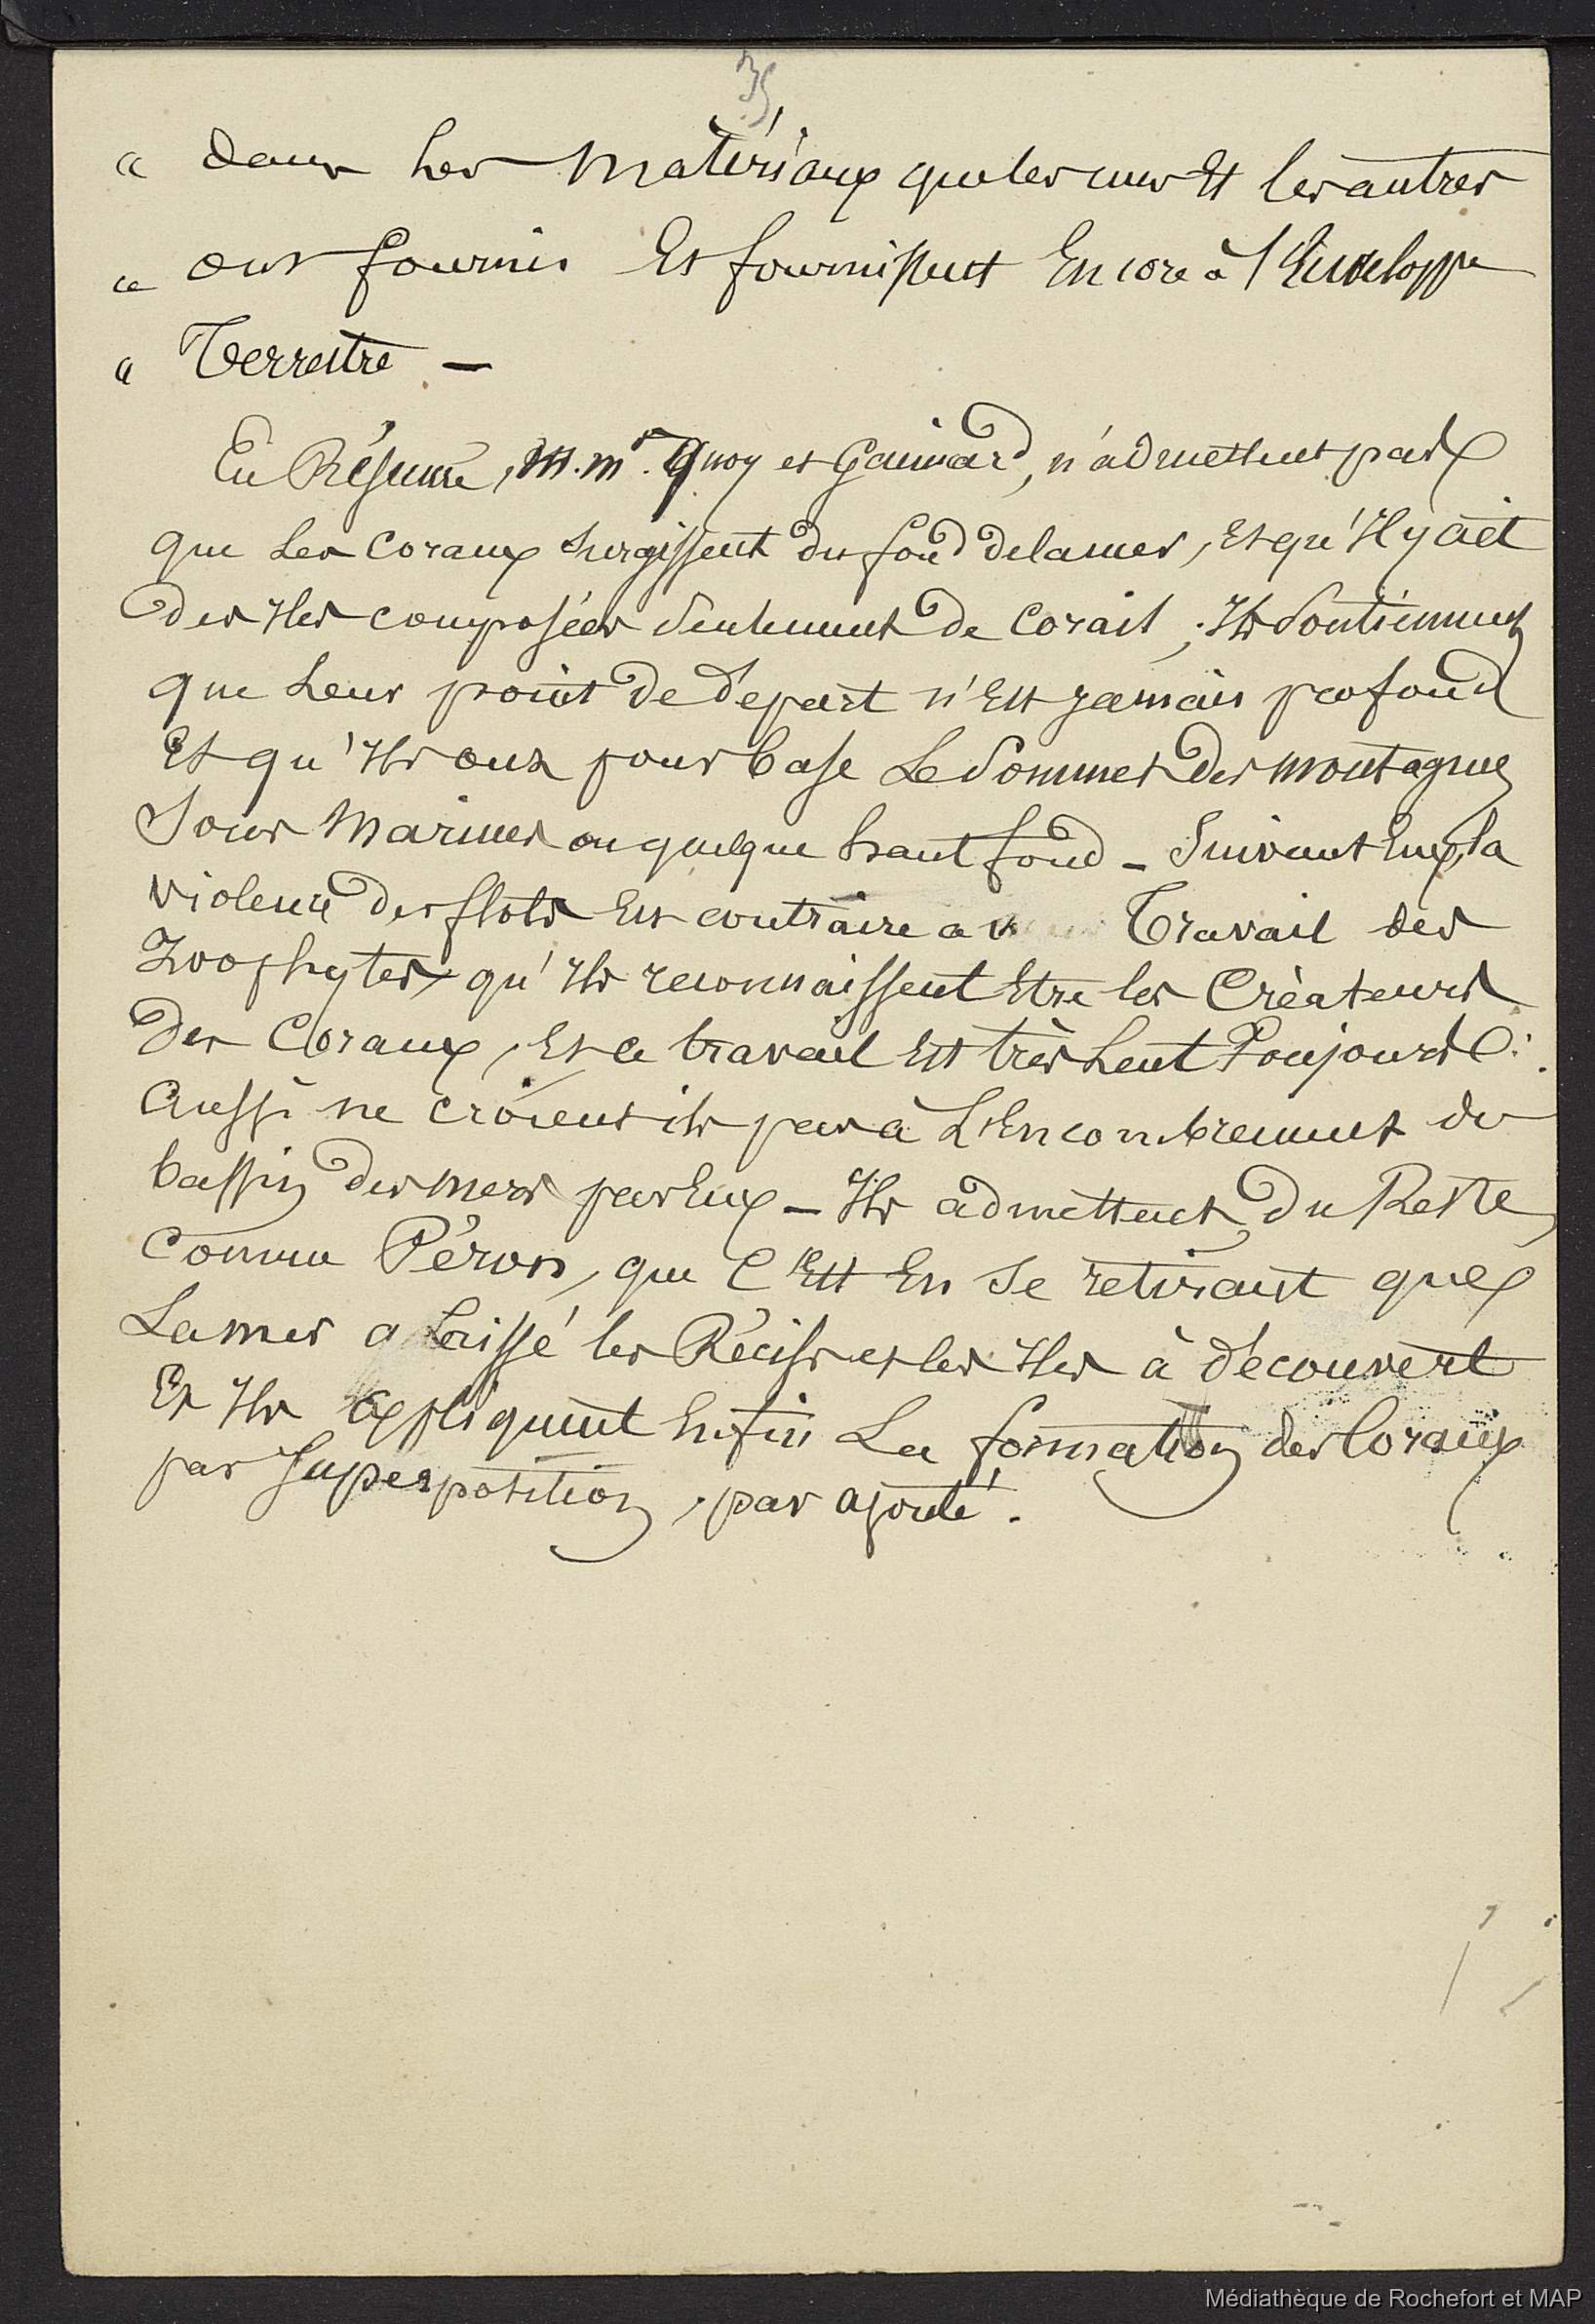 35
" dans les matériaux que les uns Et les autres
" ont fournis Et fournissent Encore à l'Enveloppe
" Terrestre —
En Résumé, M.Mrs. Quoy et Gaimard, n'admettent pas
que les coraux surgissent du fond de la mer, Et qu'Il y ait
des Iles composées seulement de corail ; Ils soutiennent
que leur point de départ n'Est jamais profond
Et qu'Ils ont pour base Le sommet des montagnes
Sous Marines ou quelque haut fond – Suivant Eux, la
violence des flots Est contraire au Travail des
Zoophytes, qu'Ils reconnaissent Etre les Créateurs
des Coraux, Et ce travail Est très Lent Toujours :
Aussi ne croient ils pas à L'Encombrement du
bassin des mers par Eux – Ils admettent, du Reste,
Comme Péron, que C'Est En se retirant que
La mer a laissé les Récifs et les Iles à découvert
Et Ils Expliquent Enfin La formation des Coraux
par Superposition, par ajouté.
Médiathèque de Rochefort et MAP